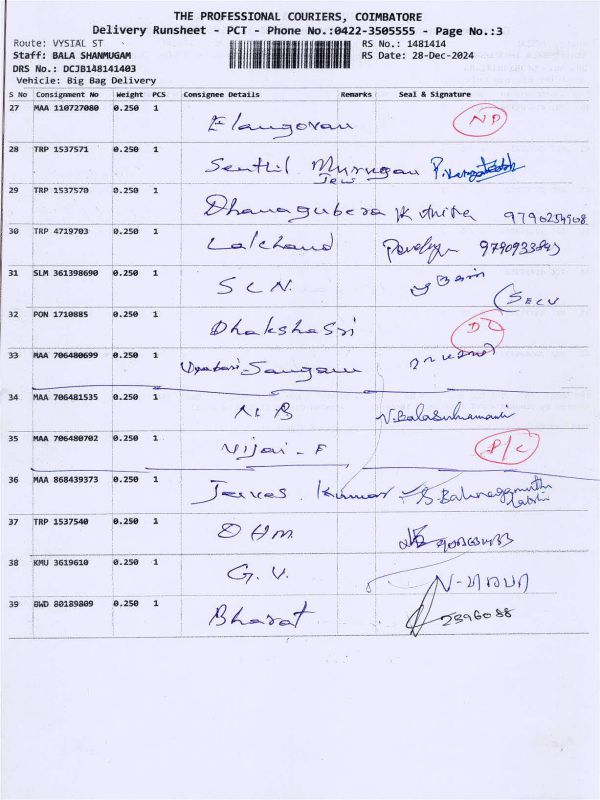 THE PROFESSIONAL COURIERS, COIMBATORE
Delivery Runsheet - PCT - Phone No.:0422-3505555 - Page No.:3
Route: VYSIAL ST RS No.: 1481414
Staff: BALA SHANMUGAM RS Date: 28-Dec-2024
DRS No.: DCJB148141403
Vehicle: Big Bag Delivery
S No Consignment No Weight PCS Consignee Details Remarks Seal & Signature
27 MAA 110727080 0.250 1 Elangovan NP
28 TRP 1537571 0.250 1 Senthil Murugan
Jew
29 TRP 1537570 0.250 1 Dhanagubera
30 TRP 4719703 0.250 1 Lalchand
31 SLM 361398690 0.250 1 S L N.
32 PON 1710885 0.250 1 Dhakshasri DL
33 MAA 706480699 0.250 1
34 MAA 706481535 0.250 1 N B N.Balasubramani
35 MAA 706480702 0.250 1 Vijai - F
36 MAA 868439373 0.250 1 Kumar
37 TRP 1537540 0.250 1 O Hm
38 KMU 3619610 0.250 1 G. V.
39 BWD 80189809 0.250 1 Bharat 2396088